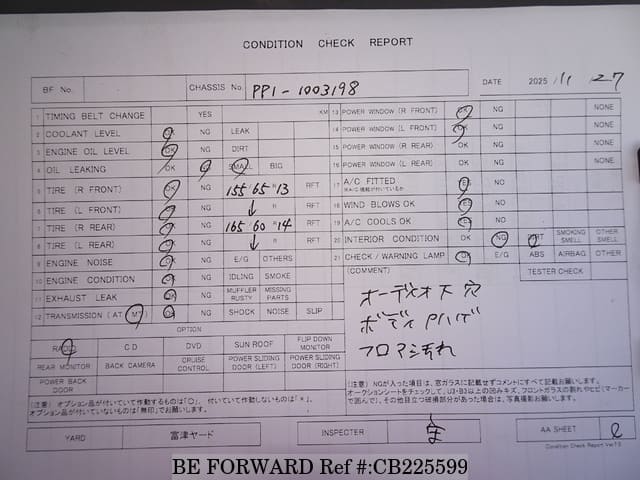 CONDITION CHECK REPORT
BF No. CHASSIS No. PP1-1003198 DATE 2025 / 11 27
1 TIMING BELT CHANGE YES KM
2 COOLANT LEVEL OK NG LEAK
3 ENGINE OIL LEVEL OK NG DIRT
4 OIL LEAKING OK NG SMALL BIG
5 TIRE (R FRONT) OK NG 155/65 R 13 RFT
6 TIRE (L FRONT) OK NG ↓ R RFT
7 TIRE (R REAR) OK NG 165/60 R 14 RFT
8 TIRE (L REAR) OK NG ↓ R RFT
9 ENGINE NOISE OK NG E/G OTHERS
10 ENGINE CONDITION OK NG IDLING SMOKE
11 EXHAUST LEAK OK NG MUFFLER RUSTY MISSING PARTS
12 TRANSMISSION (AT MT) OK NG SHOCK NOISE SLIP
13 POWER WINDOW (R FRONT) OK NG NONE
14 POWER WINDOW (L FRONT) OK NG NONE
15 POWER WINDOW (R REAR) OK NG NONE
16 POWER WINDOW (L REAR) OK NG NONE
17 A/C FITTED YES NO
※A/C機能が付いているか
18 WIND BLOWS OK YES NO
19 A/C COOLS OK YES NO
20 INTERIOR CONDITION OK NG DIRT SMOKING SMELL OTHER SMELL
21 CHECK / WARNING LAMP OK E/G ABS AIRBAG OTHER
(COMMENT) TESTER CHECK
オーディオ下穴
ボディPハゲ
フロアシ汚れ
OPTION
RADIO CD DVD SUN ROOF FLIP DOWN MONITOR
REAR MONITOR BACK CAMERA CRUISE CONTROL POWER SLIDING DOOR (LEFT) POWER SLIDING DOOR (RIGHT)
POWER BACK DOOR
(注意) オプション品が付いていて作動するものは「○」、付いていて作動しないものは「×」、
オプション品が付いていないものは「無印」でお願いします。
(注意) NGが入った項目は、窓ガラスに記載せずコメントにすべて記載お願いします。
オークションシートをチェックして、U3・B3以上の凹みキズ、フロントガラスの割れやヒビ(マーカー
で囲んで)、その他目立つ破損部分があった場合は、写真撮影お願いします。
YARD 富津ヤード INSPECTER AA SHEET
Condition Check Report Ver7.0
BE FORWARD Ref #:CB225599